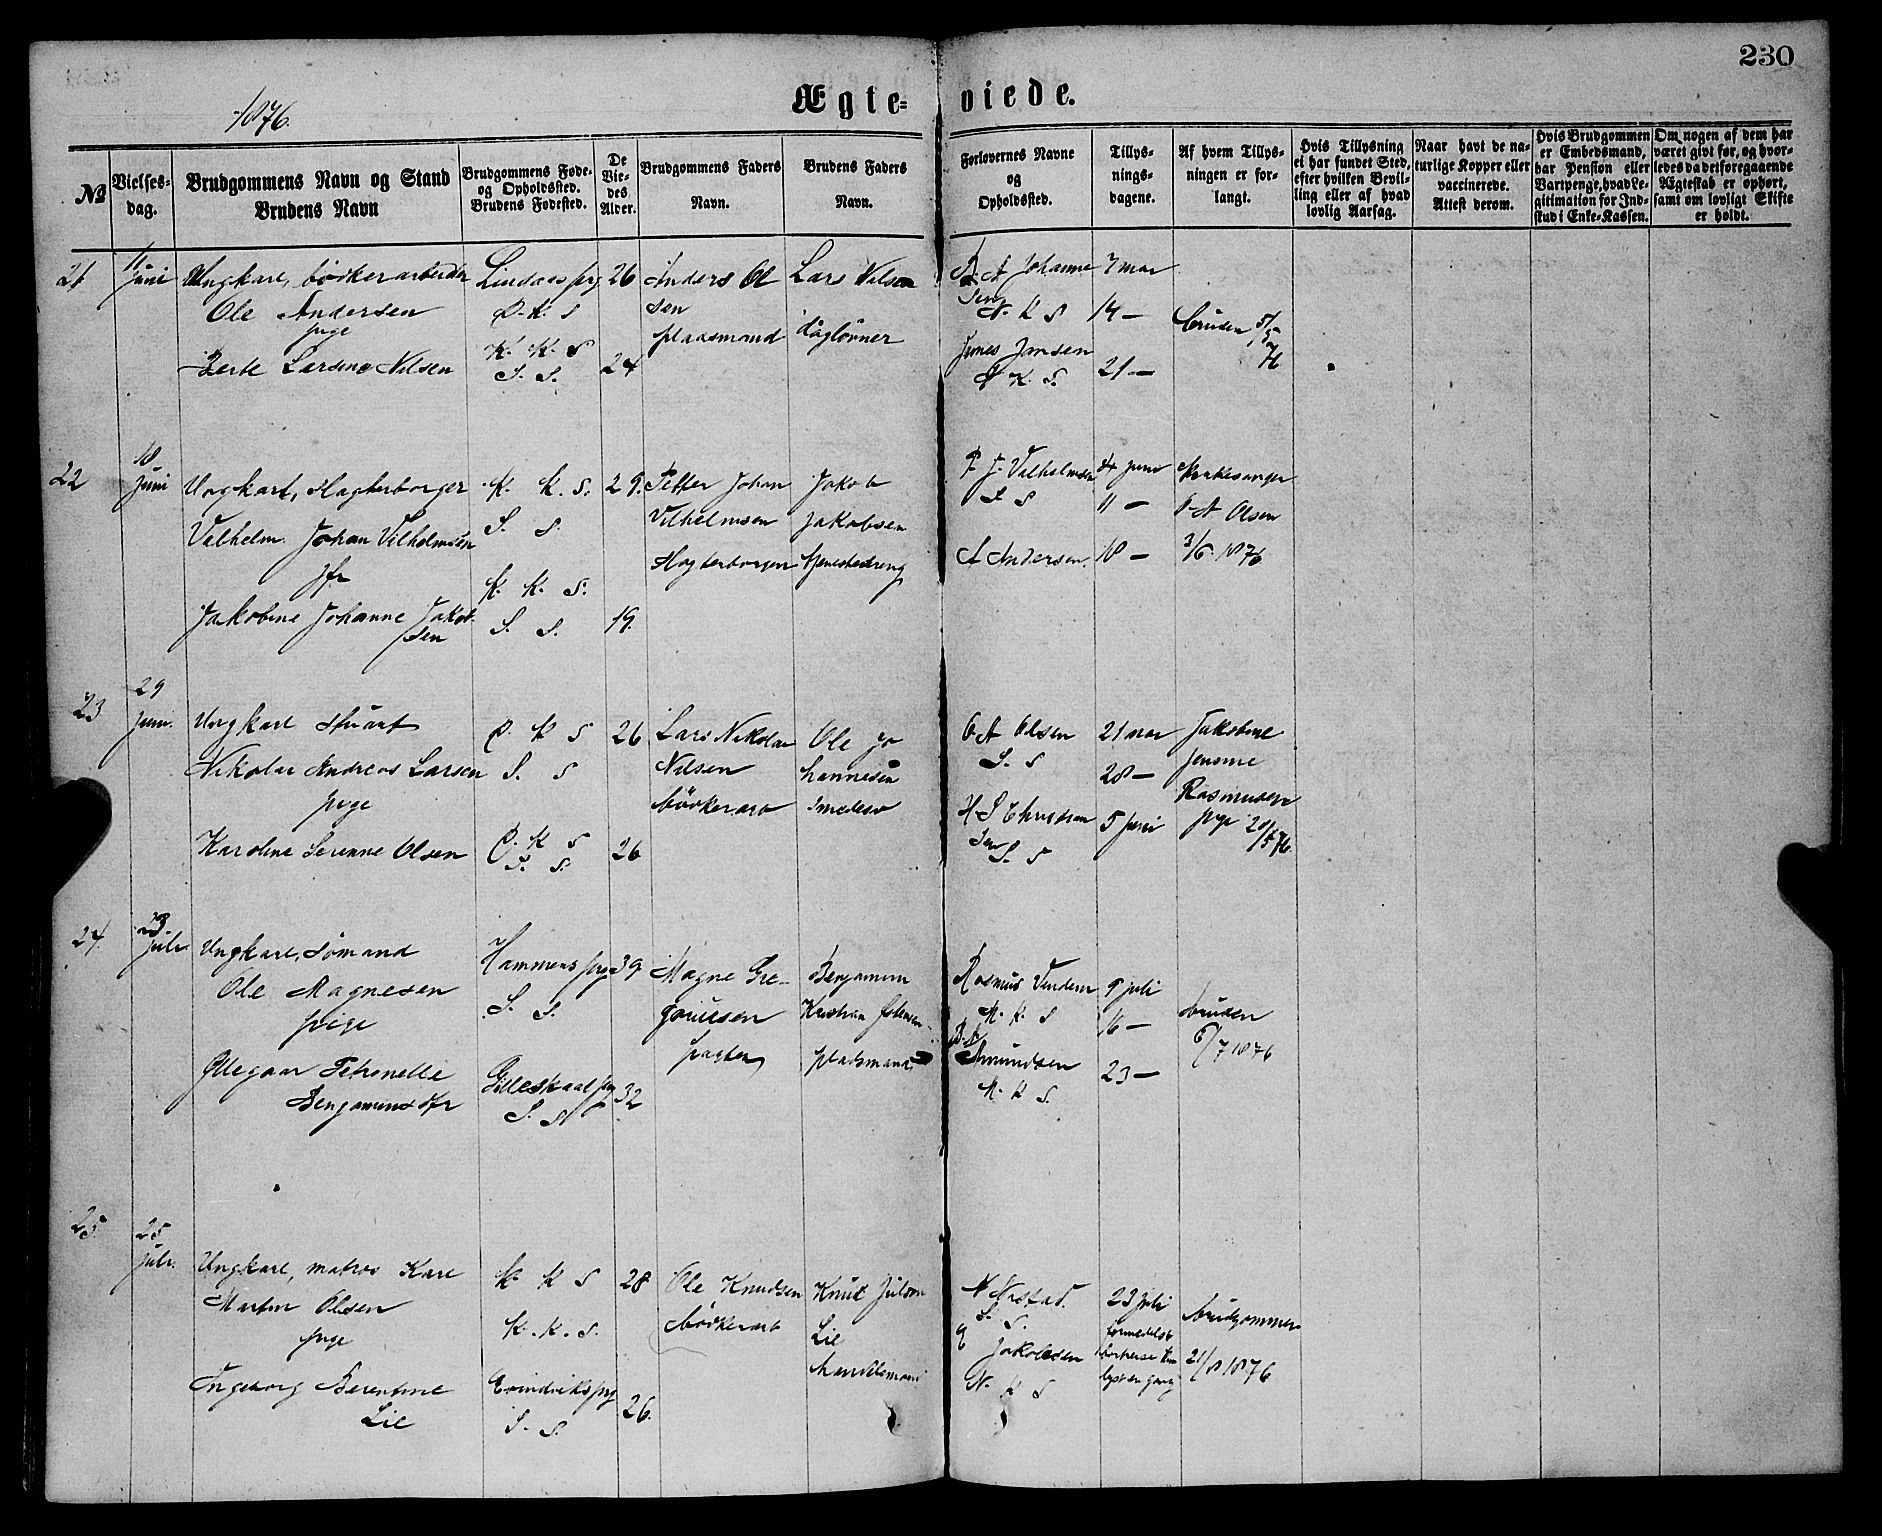 230
1876.
Ægte=viede.
№
Vielses-dag.
Brudgommens Navn og Stand
Brudens Navn
Brudgommens Føde-
og Opholdssted.
Brudens Fødested.
De
Vie-
des
Alder.
Brudgommens Faders
Navn.
Brudens Faders
Navn.
Forlovernes Navne
og
Opholdssted.
Tillys-
nings-
dagene.
Af hvem Tillys-
ningen er for-
langt.
Hvis Tillysning
ei har fundet Sted,
efter hvilken Bevil-
ling eller af hvad
lovlig Aarsag.
Naar havt de na-
turlige Kopper eller
vaccinerede.
Attest derom.
Hvis Brudgommen
er Embedsmand,
har Pension eller
Vartpenge, hvad Le-
gitimation for Ind-
skud i Enke-Kassen.
Om nogen af dem har
været gift før, og hvor-
ledes da det foregaaende
Ægteskab er ophørt,
samt om lovligt Skifte
er holdt.
21
11 juni
Ungkarl, bødkerarbeider
Ole Andersen
pige
Larsine Nilsen
Lindaas prg
D. K. S
K. K. S
S. S.
26
24
Anders Ol
sen
pladsmand
Lars Nilsen
dagløner
A Johanne
sen
N. K S
Jansen
N K. S.
7 mai
14 —
21 —
bruden 5/5
76
22
18
juni
Ungkarl,
Vilhelm Johan Vilhelmsen
jfr
Jakobine Johanne Jakob-
sen
K. K. S.
S. S.
K. K. S.
S. S.
29.
19.
Petter Johan
Vilhelmsen
Jakob
Jakobsen
P. J. Vilhelmsen
S S
A Andersen.
4 juni
11 —
18 —
Kirkesanger
O A Olsen
3/6 1876
23
29
juni.
Ungkarl Stuart
Nikolai Andreas Larsen
pige
Karoline Serenne Olsen
D. K S
S. S
D. K S
S. S.
26
26
Lars Nikolai
Nilsen
bødkerarb
Ole Jo
hannesen
smedesv
O A Olsen
S. S
H S Christian
sen
S. S
21 mai
28 —
5 juni
Jakobine
Jensine
Rasmusen
pige 20/5 76.
24.
23.
juli.
Ungkarl, sømand
Ole Magnesen
pige
Petronelle
Benjaminsdtr
Hammers prg
S. S.
Gilleskaal prg
S. S
39
32
Magne Gre-
goriusen
Benjamin
Kristian
pladsmand
Rasmus
N. K S
Amundsen
N. K S.
9 juli
16 —
23 —
bruden
6/7 1876
25.
25
juli.
Ungkarl, matros Karl
Martin Olsen
pige
Ingeborg Berentine
Lie
K. K S
K. K. S.
Evindviks prg
S. S.
28
26.
Ole Knudsen
bødkerarb
Knut Julson
Lie
handelsmand
S. S.
Jakobsen
N. K S
23 juli
formedelst
en gang
brudgommen